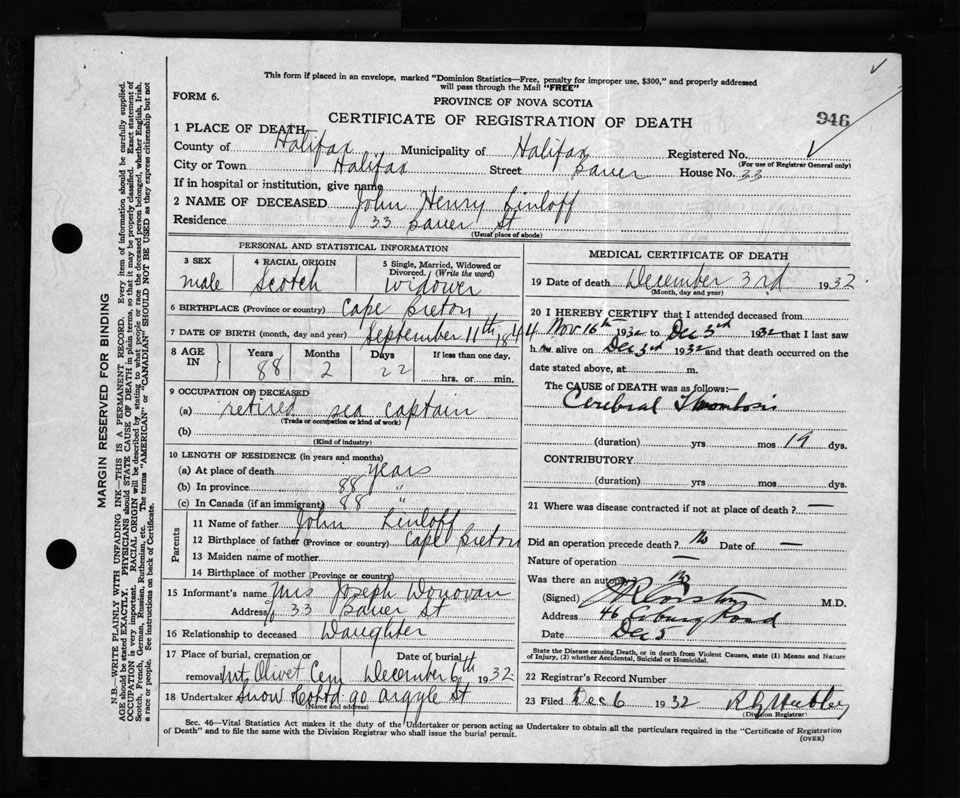 This form if placed in an envelope, marked "Dominion Statistics—Free, penalty for improper use, $300," and properly addressed
will pass through the Mail "FREE"
FORM 6.
PROVINCE OF NOVA SCOTIA
CERTIFICATE OF REGISTRATION OF DEATH
946
1 PLACE OF DEATH
County of Halifax Municipality of Halifax Registered No.
(For use of Registrar General only)
City or Town Halifax Street Bauer House No. 33
If in hospital or institution, give name
2 NAME OF DECEASED John Henry Linloff
Residence 33 Bauer St
(Usual place of abode)
PERSONAL AND STATISTICAL INFORMATION
3 SEX male
4 RACIAL ORIGIN Scotch
5 Single, Married, Widowed or Divorced. (Write the word) Widower
6 BIRTHPLACE (Province or country) Cape Breton
7 DATE OF BIRTH (month, day and year) September 11th 1844
8 AGE IN Years 88 Months 2 Days 22 If less than one day, hrs. or min.
9 OCCUPATION OF DECEASED
(a) retired sea captain
(Trade or occupation or kind of work)
(b)
(Kind of industry)
10 LENGTH OF RESIDENCE (in years and months)
(a) At place of death years
(b) In province 88 "
(c) In Canada (if an immigrant) 88 "
Parents
11 Name of father John Linloff
12 Birthplace of father (Province or country) Cape Breton
13 Maiden name of mother
14 Birthplace of mother (Province or country)
15 Informant's name Mrs Joseph Donovan
Address 33 Bauer St
16 Relationship to deceased Daughter
17 Place of burial, cremation or removal Mt Olivet Cem Date of burial December 6th 1932
18 Undertaker Snow & Co Ltd 90 Argyle St
(Name and address)
MEDICAL CERTIFICATE OF DEATH
19 Date of death December 3rd 1932
(Month, day and year)
20 I HEREBY CERTIFY that I attended deceased from
Nov 16th 1932 to Dec 3rd 1932 that I last saw
him alive on Dec 3rd 1932 and that death occurred on the
date stated above, at m.
The CAUSE of DEATH was as follows:—
Cerebral Thrombosis
(duration) yrs mos 19 dys.
CONTRIBUTORY
(duration) yrs mos dys.
21 Where was disease contracted if not at place of death? —
Did an operation precede death? No Date of —
Nature of operation —
Was there an autopsy No
(Signed) M.D.
Address 46 Coburg Road
Date Dec 5
State the Disease causing Death, or in death from Violent Causes, state (1) Means and Nature
of Injury, (2) whether Accidental, Suicidal or Homicidal.
22 Registrar's Record Number
23 Filed Dec 6 1932
(Division Registrar)
Sec. 46—Vital Statistics Act makes it the duty of the Undertaker or person acting as Undertaker to obtain all the particulars required in the "Certificate of Registration
of Death" and to file the same with the Division Registrar who shall issue the burial permit.
(OVER)
MARGIN RESERVED FOR BINDING
N.B.—WRITE PLAINLY WITH UNFADING INK—THIS IS A PERMANENT RECORD. Every item of information should be carefully supplied.
AGE should be stated EXACTLY. PHYSICIANS should STATE CAUSE OF DEATH in plain terms, so that it may be properly classified. Exact statement of
OCCUPATION is very important. RACIAL ORIGIN will be described by stating to what people or race the deceased person belonged, whether English, Irish,
Scotch, French, German, Russian, Ruthenian, etc. The terms "AMERICAN" or "CANADIAN" SHOULD NOT BE USED as they express citizenship but not
a race or people. See instructions on back of Certificate.